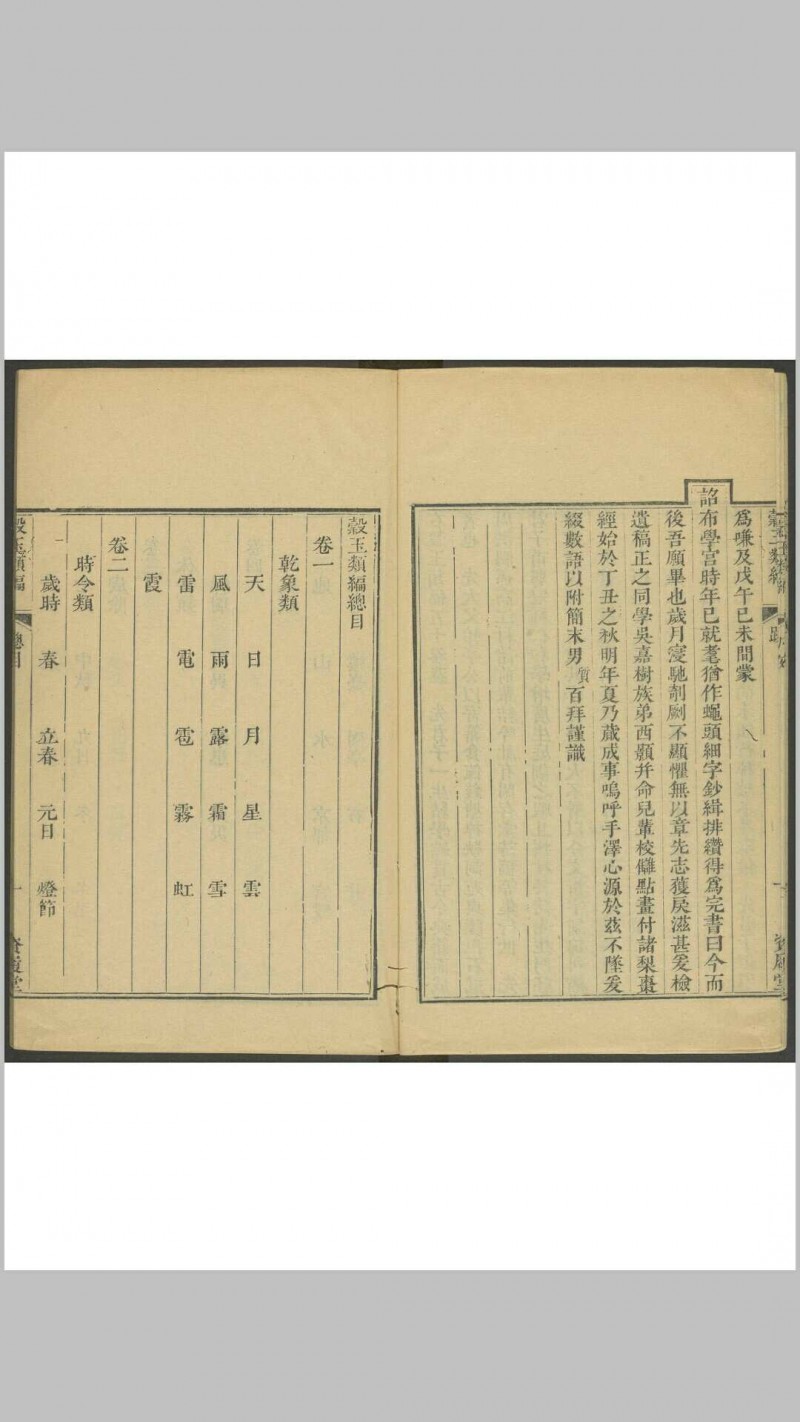 為嗛及戊午已未間蒙
詔布學宮時年已就耄猶作蠅頭細字鈔緝排纘得為完書曰今而
後吾願畢也歲月寖馳剞劂不顯懼無以章先志獲戾滋甚爰檢
遺稿正之同學吳嘉樹族弟西顥并命兒輩校讎點畫付諸梨棗
經始於丁丑之秋明年夏乃蕆成事嗚呼手澤心源於茲不墜爰
綴數語以附簡末男質百拜謹識
榖玉類編總目
卷一
乾象類
天 日 月 星 雲
風 雨 露 霜 雪
雷 電 雹 霧 虹
霞
卷二
時令類
歲時 春 立春 元日 燈節
榖玉類編 總目 一